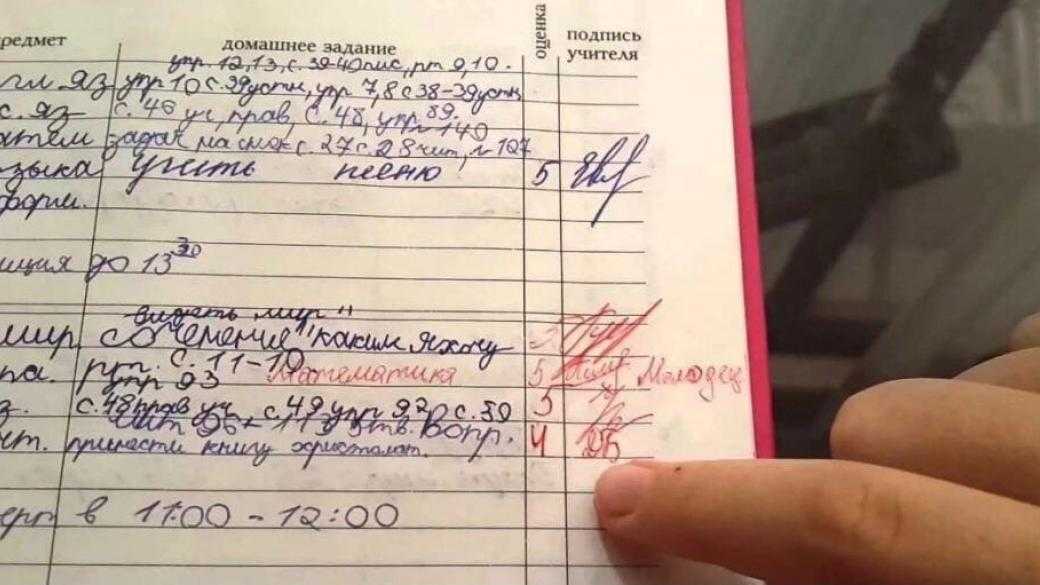 редмет домашнее задание оценка подпись учителя
упр 12,13, с. 39-40 пис, рт 9,10.
гл. яз упр 10 с. 39 устн, упр 7,8 с 38-39 устн
с. яз с. 46 уч, прав, с. 48, упр 89.
атем задач на смек с. 27 с. 28 чит, № 107 140
зыка учить песню! 5
форм.
иция до 13 30
видеть мир"
мир сочинение "каким я хочу
па. рт. с. 11-10 Математика 5 Молодец
упр 93
з. с. 48 прав уч, с. 49 упр 92 с. 59 5
чт. принести книгу христомат. 4
в 11:00 - 12:00